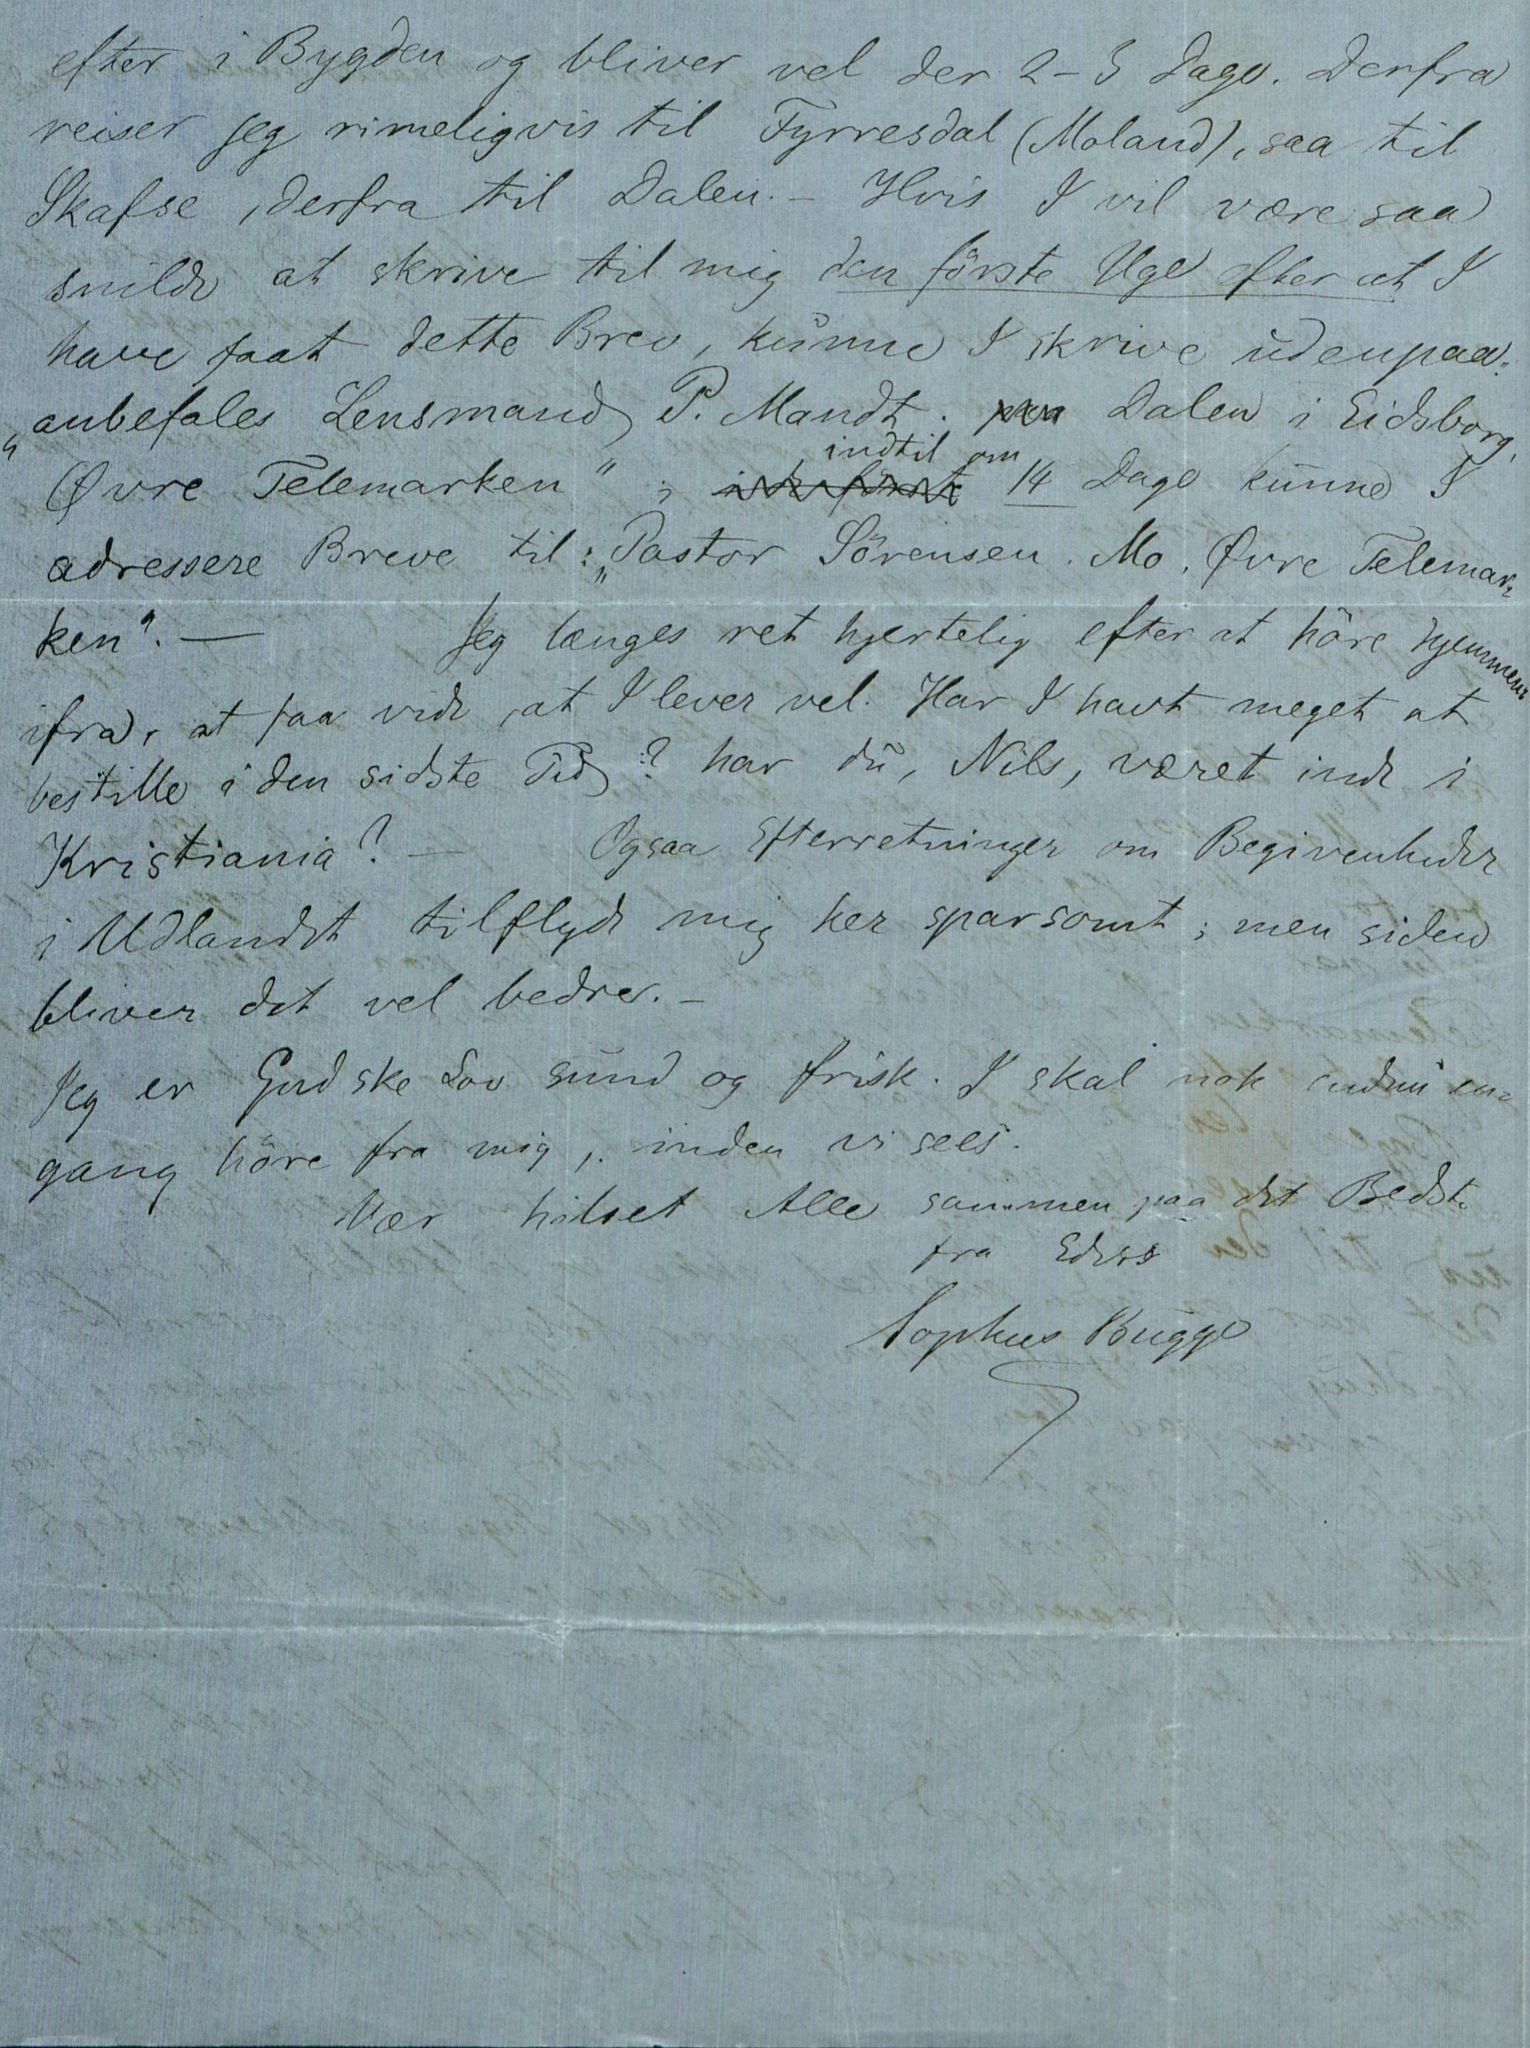 efter i Bygden og bliver vel der 2-3 Dage. Derfra
reiser jeg rimeligvis til Fyrresdal (Moland), saa til
Skafse, derfra til Dalen. – Hvis I vil være saa
snilde at skrive til mig den förste Uge efter at I
have faat dette Brev, kunne I skrive udenpaa:
„anbefales Lensmand P. Mandt. Dalen i Eidsborg,
indtil om
Øvre Telemarken"; 14 Dage kunne I
adressere Breve til: „Pastor Sörensen. Mo. Øvre Telemar-
ken". — Jeg længes ret hjertelig efter at höre hjemmen
ifra, at faa vide, at I lever vel. Har I havt meget at
bestille i den sidste Tid? har du, Nils, været inde i
Kristiania? – Ogsaa Efterretninger om Begivenheder
i Udlandet tilflyde mig her sparsomt; men siden
bliver det vel bedre. –
Jeg er Gud ske Lov sund og frisk. I skal nok endnu en-
gang höre fra mig, inden vi sees.
Vær hilset Alle sammen paa det Bedste
fra Eders
Sophus Bugge